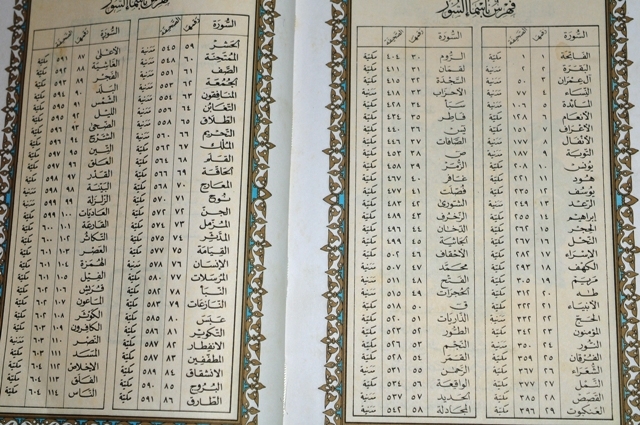 فهرس بأسماء السور
السورة رقمها الصفحة
الفاتحة ١ ١ مكية
البقرة ٢ مدنية
آل عمران ٣ ٥٠ مدنية
النساء ٤ ٧٧ مدنية
المائدة ٥ ١٠٦ مدنية
الأنعام ٦ ١٢٨ مكية
الأعراف ٧ ١٥١ مكية
الأنفال ٨ ١٧٧ مدنية
التوبة ٩ ١٨٧ مدنية
يونس ١٠ ٢٠٨ مكية
هود ١١ ٢٢١ مكية
يوسف ١٢ ٢٣٥ مكية
الرعد ١٣ ٢٤٩ مدنية
إبراهيم ١٤ ٢٥٥ مكية
الحجر ١٥ ٢٦٢ مكية
النحل ١٦ ٢٦٧ مكية
الإسراء ١٧ ٢٨٢ مكية
الكهف ١٨ ٢٩٣ مكية
مريم ١٩ ٣٠٥ مكية
طه ٢٠ ٣١٢ مكية
الأنبياء ٢١ ٣٢٢ مكية
الحج ٢٢ ٣٣٢ مدنية
المؤمنون ٢٣ ٣٤٢ مكية
النور ٢٤ ٣٥٠ مدنية
الفرقان ٢٥ ٣٥٩ مكية
الشعراء ٢٦ ٣٦٧ مكية
النمل ٢٧ ٣٧٧ مكية
القصص ٢٨ ٣٨٥ مكية
العنكبوت ٢٩ ٣٩٦ مكية
السورة رقمها الصفحة
الروم ٣٠ ٤٠٤ مكية
لقمان ٣١ ٤١١ مكية
السجدة ٣٢ ٤١٥ مكية
الأحزاب ٣٣ ٤١٨ مدنية
سبأ ٣٤ ٤٢٨ مكية
فاطر ٣٥ ٤٣٤ مكية
يس ٣٦ ٤٤٠ مكية
الصافات ٣٧ ٤٤٦ مكية
ص ٣٨ ٤٥٣ مكية
الزمر ٣٩ ٤٥٨ مكية
غافر ٤٠ ٤٦٧ مكية
فصلت ٤١ ٤٧٧ مكية
الشورى ٤٢ ٤٨٣ مكية
الزخرف ٤٣ ٤٨٩ مكية
الدخان ٤٤ ٤٩٦ مكية
الجاثية ٤٥ ٤٩٩ مكية
الأحقاف ٤٦ ٥٠٢ مكية
محمد ٤٧ ٥٠٧ مدنية
الفتح ٤٨ ٥١١ مدنية
الحجرات ٤٩ ٥١٥ مدنية
ق ٥٠ ٥١٨ مكية
الذاريات ٥١ ٥٢٠ مكية
الطور ٥٢ ٥٢٣ مكية
النجم ٥٣ ٥٢٦ مكية
القمر ٥٤ ٥٢٨ مكية
الرحمن ٥٥ ٥٣١ مدنية
الواقعة ٥٦ ٥٣٤ مكية
الحديد ٥٧ ٥٣٧ مدنية
المجادلة ٥٨ ٥٤٢ مدنية
فهرس بأسماء السور
السورة رقمها الصفحة
الحشر ٥٩ ٥٤٥ مدنية
الممتحنة ٦٠ ٥٤٨ مدنية
الصف ٦١ ٥٥١ مدنية
الجمعة ٦٢ ٥٥٣ مدنية
المنافقون ٦٣ ٥٥٤ مدنية
التغابن ٦٤ ٥٥٦ مدنية
الطلاق ٦٥ ٥٥٨ مدنية
التحريم ٦٦ ٥٦٠ مدنية
الملك ٦٧ ٥٦٢ مكية
القلم ٦٨ ٥٦٤ مكية
الحاقة ٦٩ ٥٦٦ مكية
المعارج ٧٠ ٥٦٨ مكية
نوح ٧١ ٥٧٠ مكية
الجن ٧٢ ٥٧٢ مكية
المزمل ٧٣ ٥٧٤ مكية
المدثر ٧٤ ٥٧٥ مكية
القيامة ٧٥ ٥٧٧ مكية
الإنسان ٧٦ ٥٧٨ مدنية
المرسلات ٧٧ ٥٨٠ مكية
النبأ ٧٨ ٥٨٢ مكية
النازعات ٧٩ ٥٨٣ مكية
عبس ٨٠ ٥٨٥ مكية
التكوير ٨١ ٥٨٦ مكية
الانفطار ٨٢ ٥٨٧ مكية
المطففين ٨٣ ٥٨٧ مكية
الانشقاق ٨٤ ٥٨٩ مكية
البروج ٨٥ ٥٩٠ مكية
الطارق ٨٦ ٥٩١ مكية
السورة رقمها الصفحة
الأعلى ٨٧ ٥٩١ مكية
الغاشية ٨٨ ٥٩٢ مكية
الفجر ٨٩ ٥٩٣ مكية
البلد ٩٠ ٥٩٤ مكية
الشمس ٩١ ٥٩٥ مكية
الليل ٩٢ ٥٩٥ مكية
الضحى ٩٣ ٥٩٦ مكية
الشرح ٩٤ ٥٩٦ مكية
التين ٩٥ ٥٩٧ مكية
العلق ٩٦ ٥٩٧ مكية
القدر ٩٧ ٥٩٨ مكية
البينة ٩٨ ٥٩٨ مدنية
الزلزلة ٩٩ ٥٩٩ مدنية
العاديات ١٠٠ ٥٩٩ مكية
القارعة ١٠١ ٦٠٠ مكية
التكاثر ١٠٢ ٦٠٠ مكية
العصر ١٠٣ ٦٠١ مكية
الهمزة ١٠٤ ٦٠١ مكية
الفيل ١٠٥ ٦٠١ مكية
قريش ١٠٦ ٦٠٢ مكية
الماعون ١٠٧ ٦٠٢ مكية
الكوثر ١٠٨ ٦٠٢ مكية
الكافرون ١٠٩ ٦٠٣ مكية
النصر ١١٠ ٦٠٣ مدنية
المسد ١١١ ٦٠٣ مكية
الإخلاص ١١٢ ٦٠٤ مكية
الفلق ١١٣ ٦٠٤ مكية
الناس ١١٤ ٦٠٤ مكية